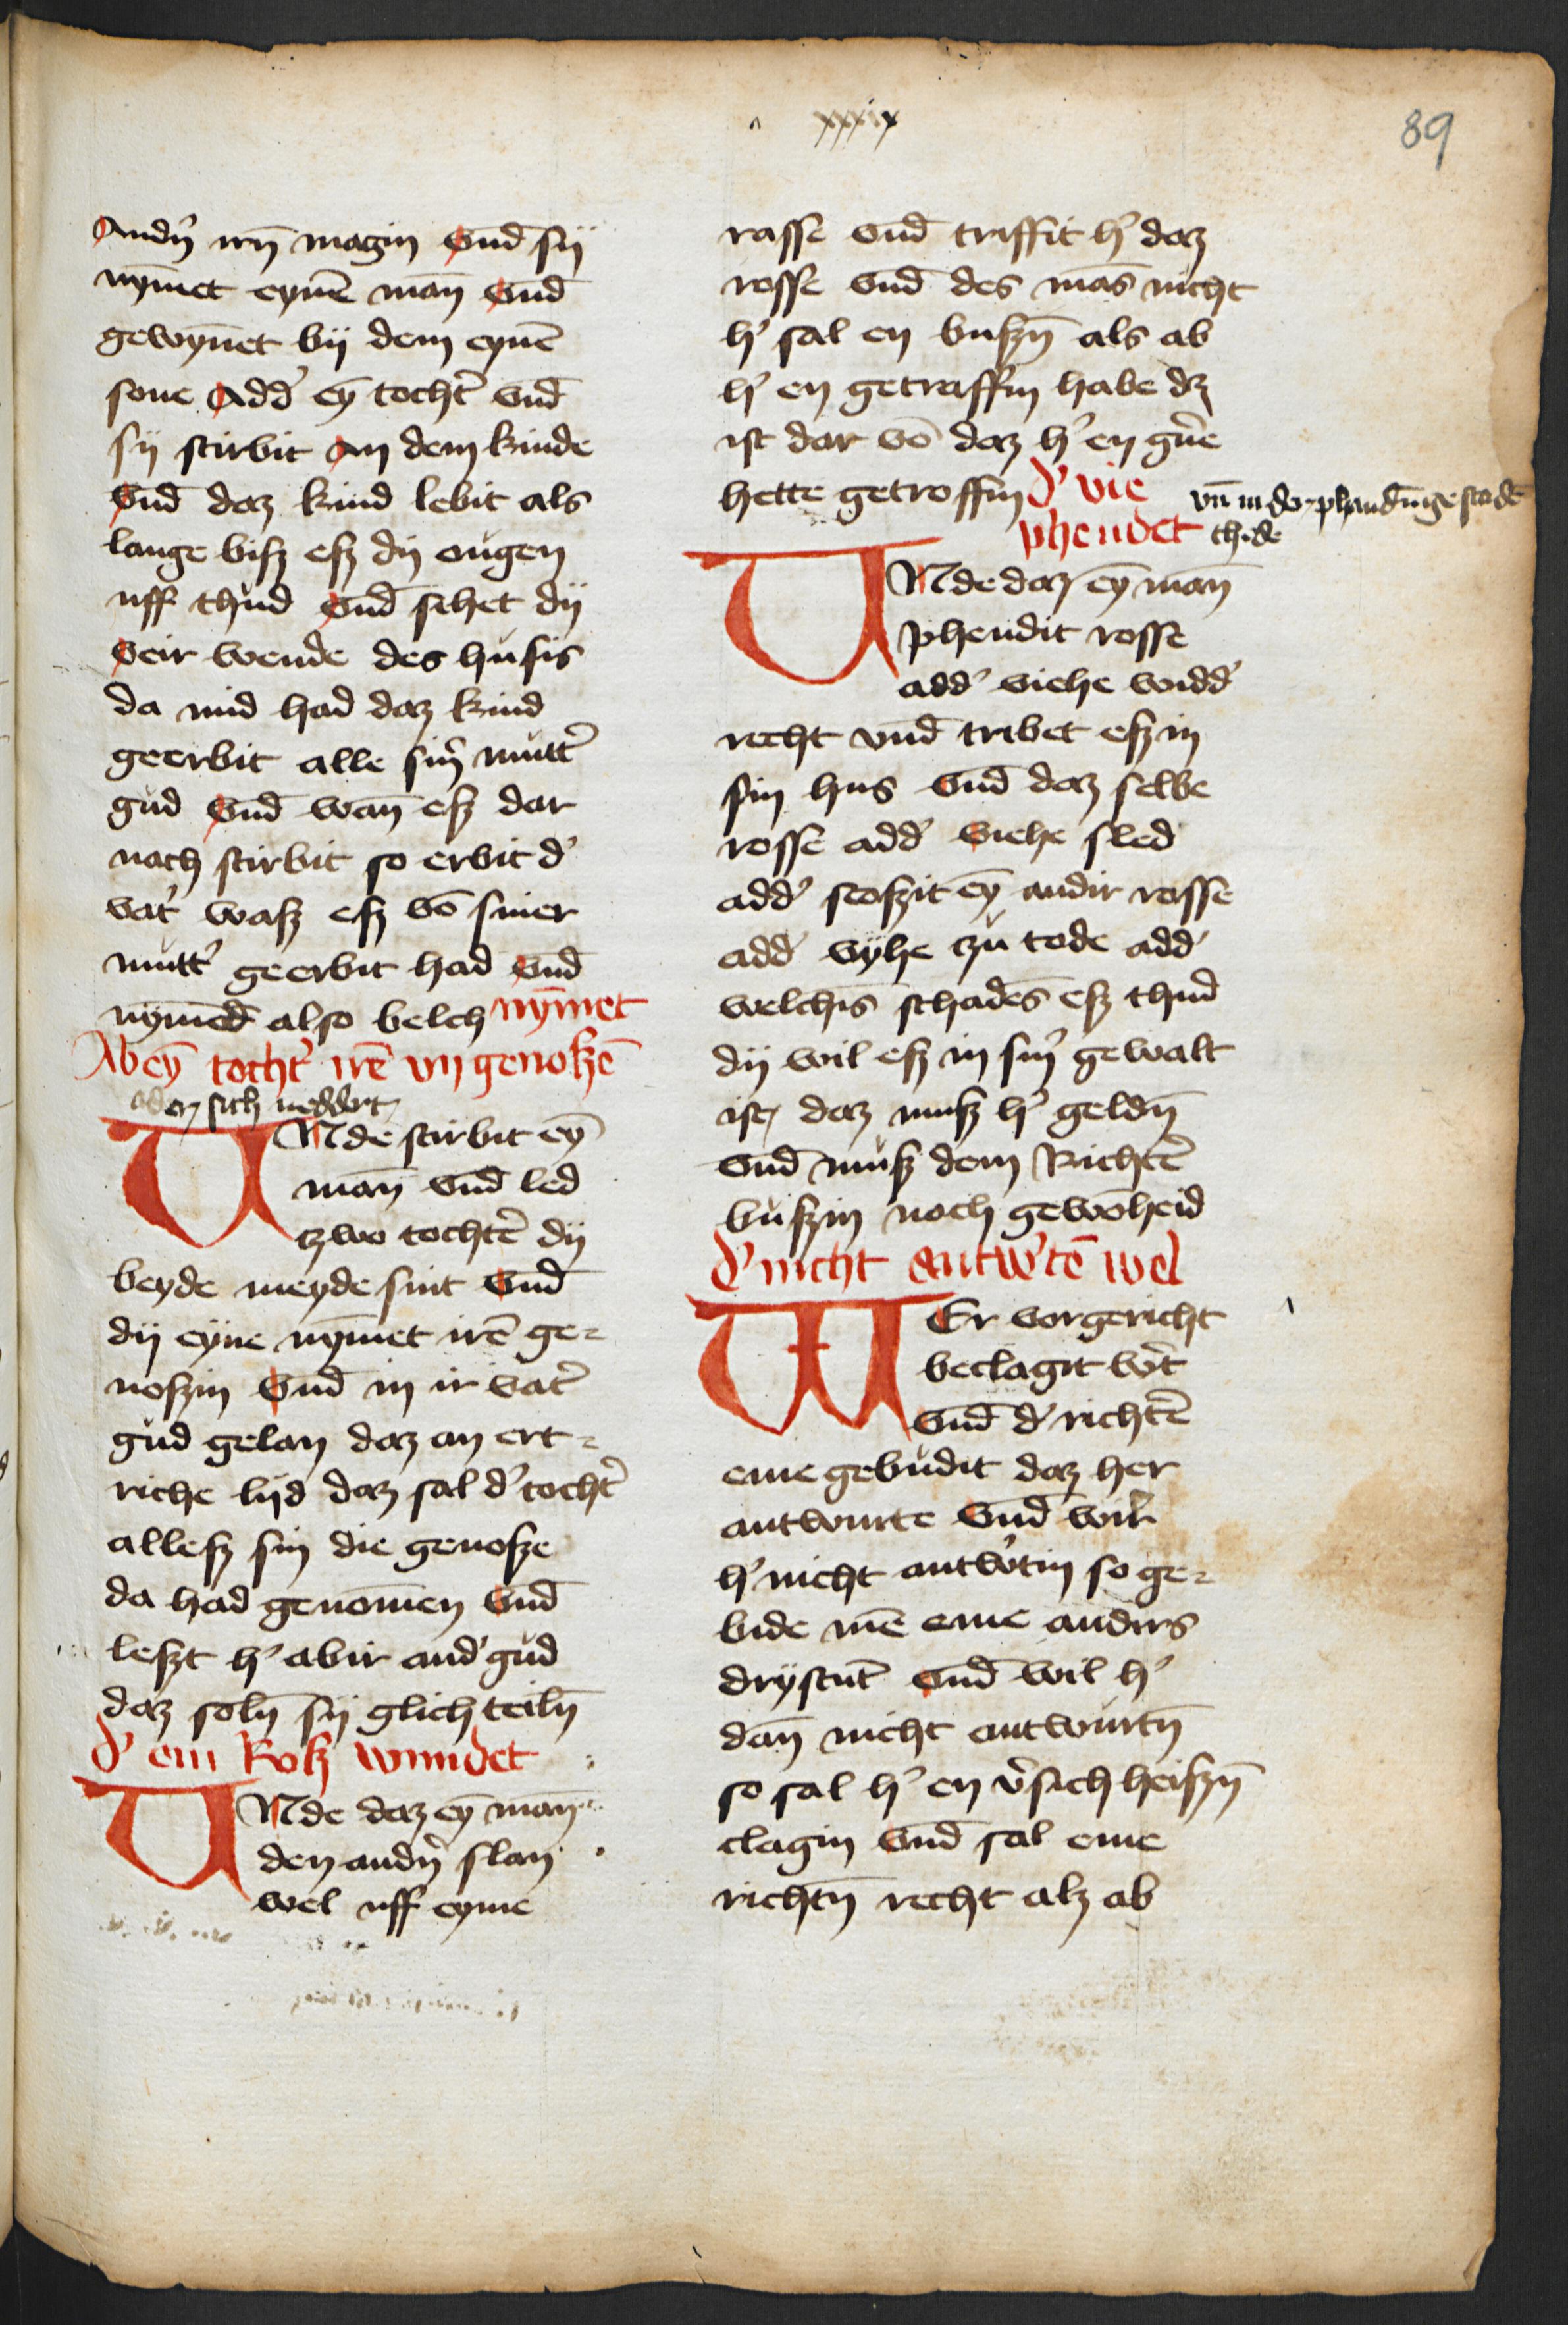 xxxix
89
Andn̉ irn̄ magin vnd̄ sij
nȳmet eynē man̄ vnd̄
gewyn̄et bij dem eynē
sone add̉ eȳ tocht̉ vnd̄
sij stirbit an dem kinde
vnd̄ daz kind lebit als
lange bisz esz dij ougen
uff thud vnd̄ sihet dij
veir wende des husis
da mid had daz kind
geerbit alle sin̉ mutt̉
gud vnd̄ wan̄ esz dar
nach stirbit so erbit d̉
vat̉ wasz esz vō siner
mutt̉ geerbit had vnd̄
nȳmed also belch nȳmet
Ab eȳ tocht̉ irē vngenoszē
ader sich neddert
VNde stirbit eȳ
man̄ vnd̄ led
zwo tocht̉e dij
beyde meyde sint vnd̄
dij eyne nȳmet irē ge-
noszin vnd̄ in ir vat̉
gud gelan daz an ert-
riche lijd daz sal d̉ tocht̉
allesz sin die genosze
da had genom̄en vnd̄
leszt h̉ abir and̉ gud
daz soln̄ sij glich teiln̄
d̉ ein Rosz wundet
VNde daz eȳ man
den andn̉ slan
wel uff eyme
rosse vnd̄ triffit h̉ daz
rosse vnd̄ des mās nicht
h̉ sal en buszn̄ als ab
h̉ en getraffin habe dz
ist dar vō daz h̉ en gn̉e
hette getroffin d̉ vie
phendet
vn̄ in der phandūge scadē
th·de
VNde daz eȳ man̄
phendit rosse
add̉ viehe widd̉
recht vnd̄ tribet esz in
sin hus vnd̄ daz selbe
rosse add̉ viehe sled
add̉ stoszit eȳ andir rosse
add̉ vyhe zu tode add̉
welchis̄ schades̄ esz thud
dij wil esz in sin̉ gewalt
ist daz musz h̉ geldn̄
vnd̄ musz dem Richt̉e
buszin noch gewōheid
d̉ nicht antw̉tē wel
WEr vorgericht
beclagit w̉t
vnd̄ d̉ richt̉e
eme gebudit daz her
antwurte vnd̄ wil
h̉ nicht antw̉tin so ge-
bide mē eme andirs
drystūt vnd̄ wil h̉
dan̄ nicht antwurtn̄
so sal h̉ en v̉sich heiszn̄
clagin vnd̄ sal eme
richtn̄ recht alz ab